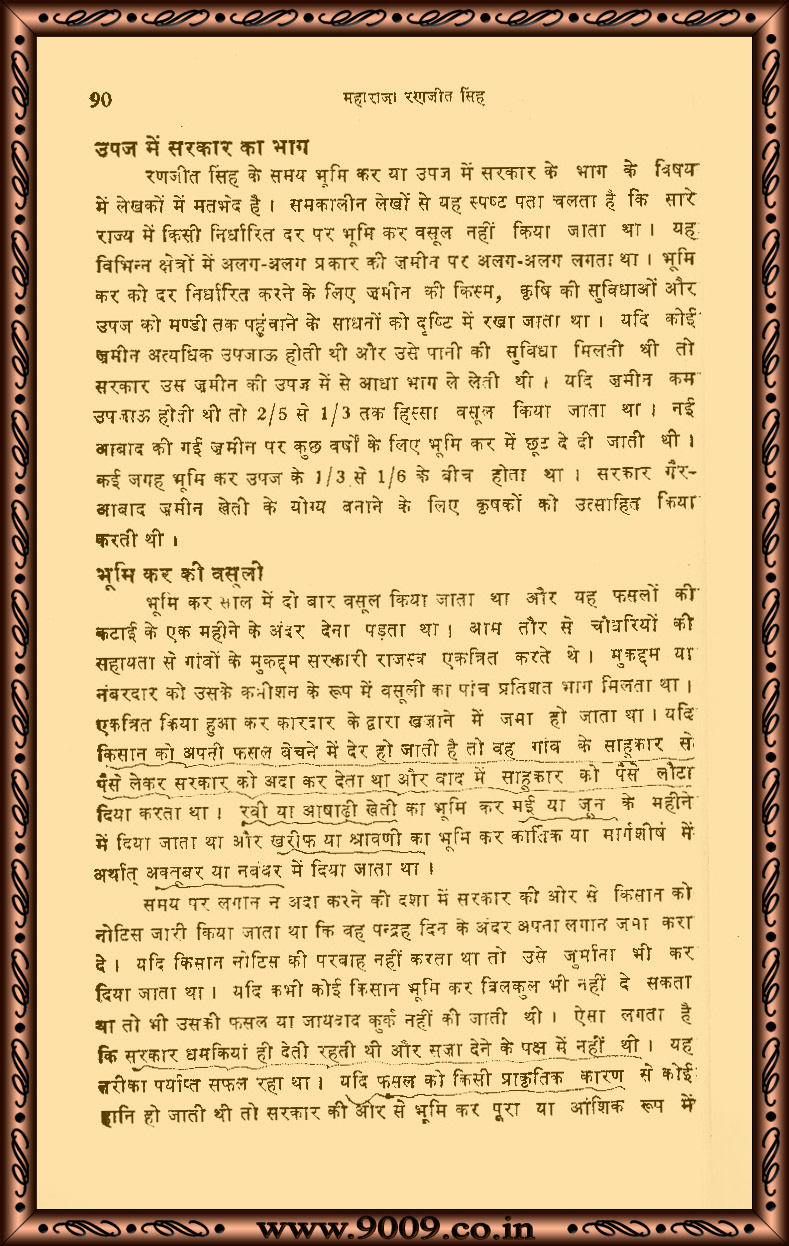 90
महाराजा रणजीत सिंह
उपज में सरकार का भाग
रणजीत सिंह के समय भूमि कर या उपज में सरकार के भाग के विषय
में लेखकों में मतभेद है । समकालीन लेखों से यह स्पष्ट पता चलता है कि सारे
राज्य में किसी निर्धारित दर पर भूमि कर वसूल नहीं किया जाता था । यह
विभिन्न क्षेत्रों में अलग-अलग प्रकार की ज़मीन पर अलग-अलग लगता था । भूमि
कर की दर निर्धारित करने के लिए ज़मीन की किस्म, कृषि की सुविधाओं और
उपज को मण्डी तक पहुंचाने के साधनों को दृष्टि में रखा जाता था । यदि कोई
ज़मीन अत्यधिक उपजाऊ होती थी और उसे पानी की सुविधा मिलती थी तो
सरकार उस ज़मीन की उपज में से आधा भाग ले लेती थी । यदि ज़मीन कम
उपजाऊ होती थी तो 2/5 से 1/3 तक हिस्सा वसूल किया जाता था । नई
आबाद की गई ज़मीन पर कुछ वर्षों के लिए भूमि कर में छूट दे दी जाती थी ।
कई जगह भूमि कर उपज के 1/3 से 1/6 के बीच होता था । सरकार गैर-
आबाद ज़मीन खेती के योग्य बनाने के लिए कृषकों को उत्साहित किया
करती थी ।
भूमि कर की वसूली
भूमि कर साल में दो बार वसूल किया जाता था और यह फसलों की
कटाई के एक महीने के अंदर देना पड़ता था । आम तौर से चौधरियों की
सहायता से गांवों के मुकद्दम सरकारी राजस्व एकत्रित करते थे । मुकद्दम या
नंबरदार को उसके कमीशन के रूप में वसूली का पांच प्रतिशत भाग मिलता था ।
एकत्रित किया हुआ कर कारदार के द्वारा खज़ाने में जमा हो जाता था । यदि
किसान को अपनी फसल बेचने में देर हो जाती है तो वह गांव के साहूकार से
पैसे लेकर सरकार को अदा कर देता था और बाद में साहूकार को पैसे लौटा
दिया करता था । रबी या आषाढ़ी खेती का भूमि कर मई या जून के महीने
में दिया जाता था और खरीफ या श्रावणी का भूमि कर कार्तिक या मार्गशीर्ष में
अर्थात् अक्तूबर या नवंबर में दिया जाता था ।
समय पर लगान न अदा करने की दशा में सरकार की ओर से किसान को
नोटिस जारी किया जाता था कि वह पन्द्रह दिन के अंदर अपना लगान जमा करा
दे । यदि किसान नोटिस की परवाह नहीं करता था तो उसे जुर्माना भी कर
दिया जाता था । यदि कभी कोई किसान भूमि कर बिलकुल भी नहीं दे सकता
था तो भी उसकी फसल या जायदाद कुर्क नहीं की जाती थी । ऐसा लगता है
कि सरकार धमकियां ही देती रहती थी और सज़ा देने के पक्ष में नहीं थी । यह
तरीका पर्याप्त सफल रहा था । यदि फसल को किसी प्राकृतिक कारण से कोई
हानि हो जाती थी तो सरकार की ओर से भूमि कर पूरा या आंशिक रूप में
www.9009.co.in